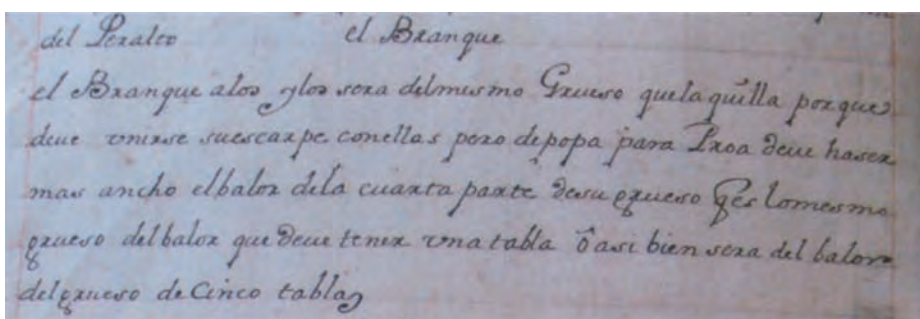 del Peralto el Branque
el Branque alos ylos sera delmusmo Grueso quela quilla porque
deue vnirse suescarpe conellas pero depopa para Proa deue haser
mas ancho elbalor dela cuarta parte desu grueso qes lomesmo
grueso delbalor que deue tener vna tabla ô asi bien sera del balor
delgrueso de Cinco tablas